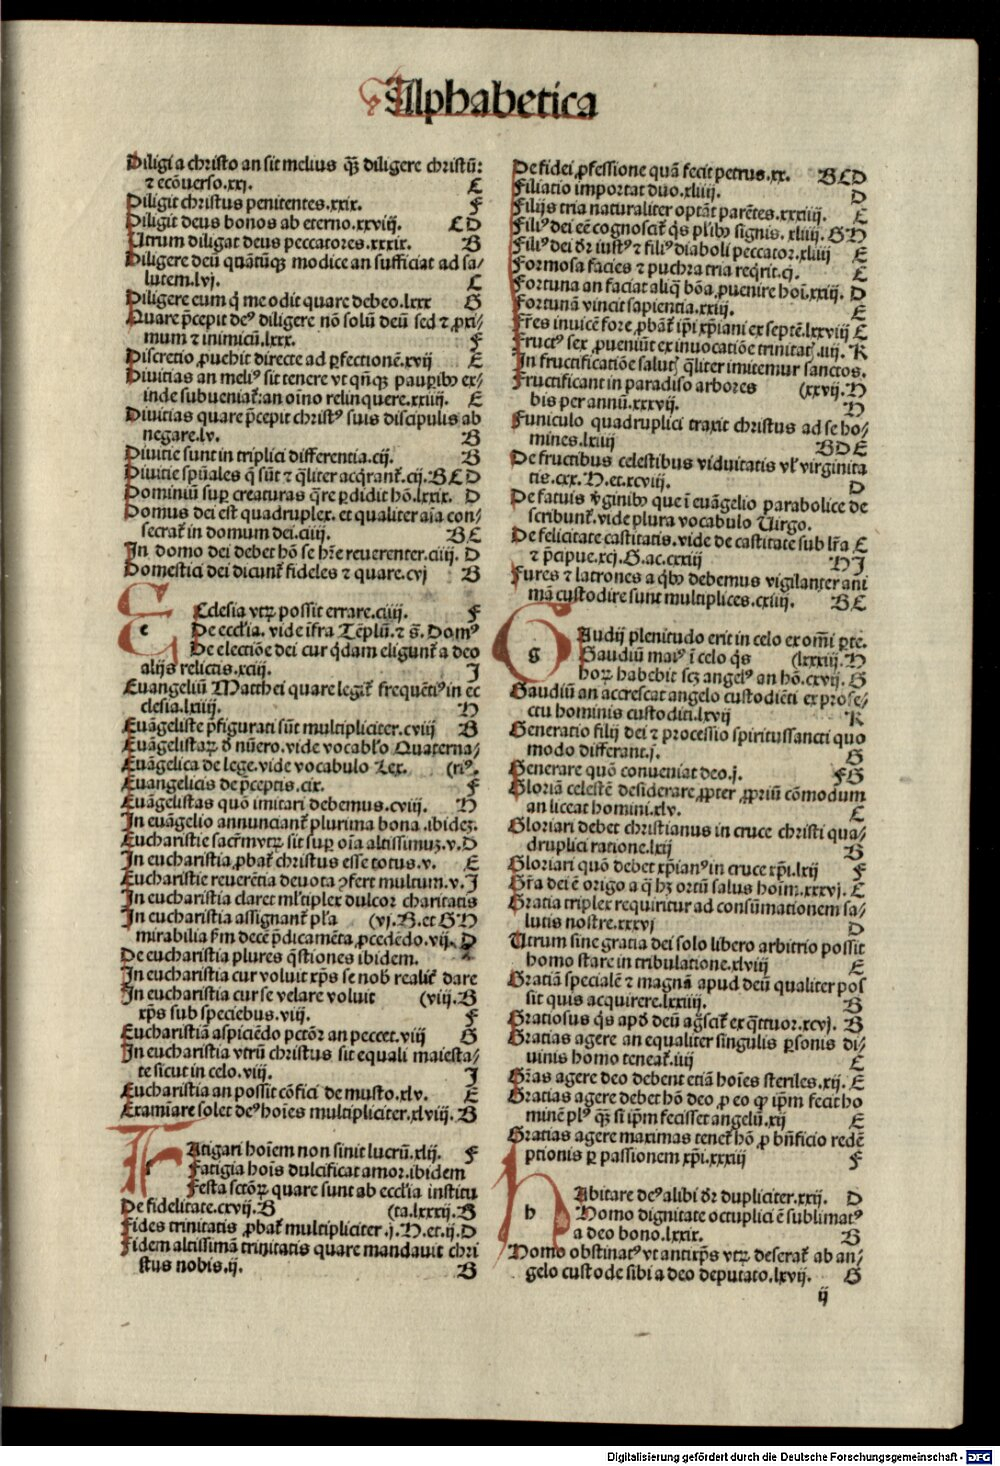 Alphabetica
Diligi a christo an sit melius q̃ȝ diligere christũ:
⁊ ecõuerso.xxj. C
Diligit christus penitentes.xxix. F
Diligit deus bonos ab eterno.xxviij. C D
Utrum diligat deus peccatores.xxxix. B
Diligere deũ quãtũqȝ modice an sufficiat ad sa-
lutem.lvj. C
Diligere eum q̃ me odit quare debeo.lxxx G
Quare p̃cepit deꝰ diligere nõ solũ deũ sed ⁊ ꝓxi-
mum ⁊ inimicũ.lxxx. F
Discretio ꝓuehit directe ad ꝑfectionẽ.xvij E
Diuitias an meliꝰ sit tenere vt qñqȝ pauꝑibꝫ ex-
inde subueniat᷑:an oĩno relinquere.xxiiij. E
Diuitias quare p̃cepit christꝰ suis discipulis ab
negare.lv. B
Diuitie sunt in triplici differentia.cij. B
Diuitie spũales q̃ sũt ⁊ q̃liter acq̃rant᷑.cij. B C D
Dominiũ suꝑ creaturas q̃re ꝑdidit hõ.lxxix. D
Domus dei est quadruplex. et qualiter aĩa con-
secrat᷑ in domum dei.ciiij. B C
In domo dei debet hõ se hr̃e reuerenter.ciiij. D
Domestici dei dicunt᷑ fideles ⁊ quare.cvj B
e
Ecclesia vtꝝ possit errare.ciiij. F
De eccl'ia. vide ĩfra Tẽplũ. ⁊ s̃. Domꝰ
De electiõe dei cur q̃dam eligunt᷑ a deo
alijs relictis.xciij. I
Euangeliũ Matthei quare legit᷑ frequẽtiꝰ in ec
clesia.lxiiij. H
Euãgeliste p̃figurati sũt multipliciter.cviij B
Euãgelistaꝝ d̃ nũero.vide vocabl'o Quaterna-
Euãgelica de lege.vide vocabulo Lex. (riꝰ.
Euangelicis de p̃ceptis.cix. F
Euãgelistas quõ imitari debemus.cviij. H
In euãgelio annunciant᷑ plurima bona.ibideȝ.
Eucharistie sacr̃mẽtũ sit suꝑ oĩa altissimuȝ.v.D
In eucharistia ꝓbat᷑ christus esse totus.v. E
Eucharistie reuerẽtia deuota ꝯfert multum.v.I
In eucharistia claret ml'tiplex dulcor charitatis
In eucharistia assignant᷑ pl'a (vj.B.et G H
mirabilia ẜm decẽ p̃dicamẽta ꝓcedẽdo.vij. D
De eucharistia plures q̃stiones ibidem.
In eucharistia cur voluit xp̃s se nob̃ realit᷑ dare
In eucharistia cur se velare voluit (viij.B
xp̃s sub speciebus.viij. F
Eucharistiã aspiciẽdo pctõr an peccet.viij G
In eucharistia vtrũ christus sit equali maiesta-
te sicut in celo.viij. I
Eucharistia an possit cõfici de musto.xlv. E
Examĩare solet deꝰ hoĩes multipliciter.xlviij. B
f
Fatigari hoĩem non sinit lucrũ.xlij. F
Fatigia hoĩs dulcificat amor.ibidem
Festa sctõꝝ quare sunt ab eccl'ia institu
De fidelitate.cxvij.B (ta.lxxxij.B
Fides trinitatis ꝓbat᷑ multipliciter.j.H.et.ij.D
Fidem altissimã trinitatis quare mandauit chri
stus nobis.ij. B
De fidei ꝓfessione quã fecit petrus.xx. B C D
Filiatio importat duo.xliiij. D
Filijs tria naturaliter optãt parẽtes.xxxiiij. E
Filiꝰ dei eẽ cognoscit᷑ q̃s pl'ibꝫ signis. xliiij. G H
Filiꝰ dei dr̃ iustꝰ ⁊ filiꝰ diaboli peccator.xliiij E
Formosa facies ⁊ puchra tria req̃rit.cj. E
Fortuna an faciat aliq̃ bõa ꝓuenire hoĩ.xxij. D
Fortunã vincit sapientia.xxiij. E
Fr̃es inuicẽ fore ꝓbãt᷑ ip̃i xp̃iani ex septẽ.lxxviij C
Fructꝰ sex ꝓueniũt ex inuocatiõe trinitatꝭ.iiij. K
In fructificatiõe salutꝭ q̃liter imitemur sanctos.
Fructificant in paradiso arbores (xxvij.H
bis per annũ.xxxvij. H
Funiculo quadruplici traxit christus ad se ho-
mines.lxiiij B D E
De fructibus celestibus viduitatis vl' virginita
tis.cxx. H.et.xcviij. D
De fatuis v̓ginibꝫ que ĩ euãgelio parabolice de
scribunt᷑.vide plura vocabulo Uirgo.
De felicitate castitatis.vide de castitate sub lr̃a C
⁊ p̃cipue.xcj.G.ac.cxxiij H I
Fures ⁊ latrones a q̃bꝫ debemus vigilanter ani
mã custodire sunt multiplices.cxiiij. B C
g
Gaudij plenitudo erit in celo ex om̃i ꝑte.
Gaudiũ maiꝰ ĩ celo q̃s (lxxxiij.H
hoꝝ habebit scȝ angelꝰ an hõ.cxvij. G
Gaudiũ an accrescat angelo custodiẽti ex profe-
ctu hominis custoditi.lxvij K
Generatio filij dei ⁊ processio spiritussancti quo
modo differant.j. G
Generare quõ conueniat deo.j. F G
Gloriã celestẽ desiderare ꝓpter ꝓpriũ cõmodum
an liceat homini.xlv. C
Gloriari debet christianus in cruce christi qua-
druplici ratione.lxij B
Gloriari quõ debet xp̃ianꝰ in cruce xp̃i.lxij F
Gr̃a dei ẽ origo a q̃ hȝ ortũ salus hoĩm.xxxvj. C
Gratia triplex requiritur ad consũmationem sa-
lutis nostre.xxxvj D
Utrum sine gratia dei solo libero arbitrio possit
homo stare in tribulatione.xlviij E
Gratiã specialẽ ⁊ magnã apud deũ qualiter pos
sit quis acquirere.lxxiiij. B
Gratiosus q̃s apd̓ deũ ag̃scit᷑ ex q̃ttuor.xcvj. B
Gratias agere an equaliter singulis ꝑsonis di-
uinis homo teneat᷑.iiij C
Gr̃as agere deo debent etiã hoĩes steriles.xij. E
Gratias agere debet hõ deo ꝓ eo ꝙ ip̃m fecit ho
minẽ plꝰ q̃ȝ si ip̃m fecisset angelũ.xij E
Gratias agere maximas tenet᷑ hõ ꝓ bñficio redẽ
ptionis ꝑ passionem xp̃i.xxxiij F
h
Habitare deꝰ alibi dr̃ dupliciter.xxij. D
Homo dignitate octuplici ẽ sublimatꝰ
a deo bono.lxxix. B
Homo obstinatꝰ vt antixp̃s vtꝝ deserat᷑ ab an-
gelo custode sibi a deo deputato.lxvij. G
ij
Digitalisierung gefördert durch die Deutsche Forschungsgemeinschaft - DFG